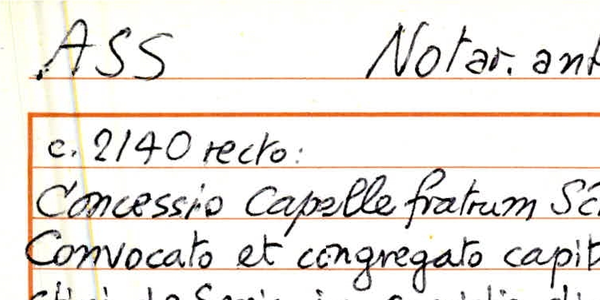 ASS Notar. ant
c. 2140 recto:
Concessio Capelle fratrum
Convocato et congregato capit